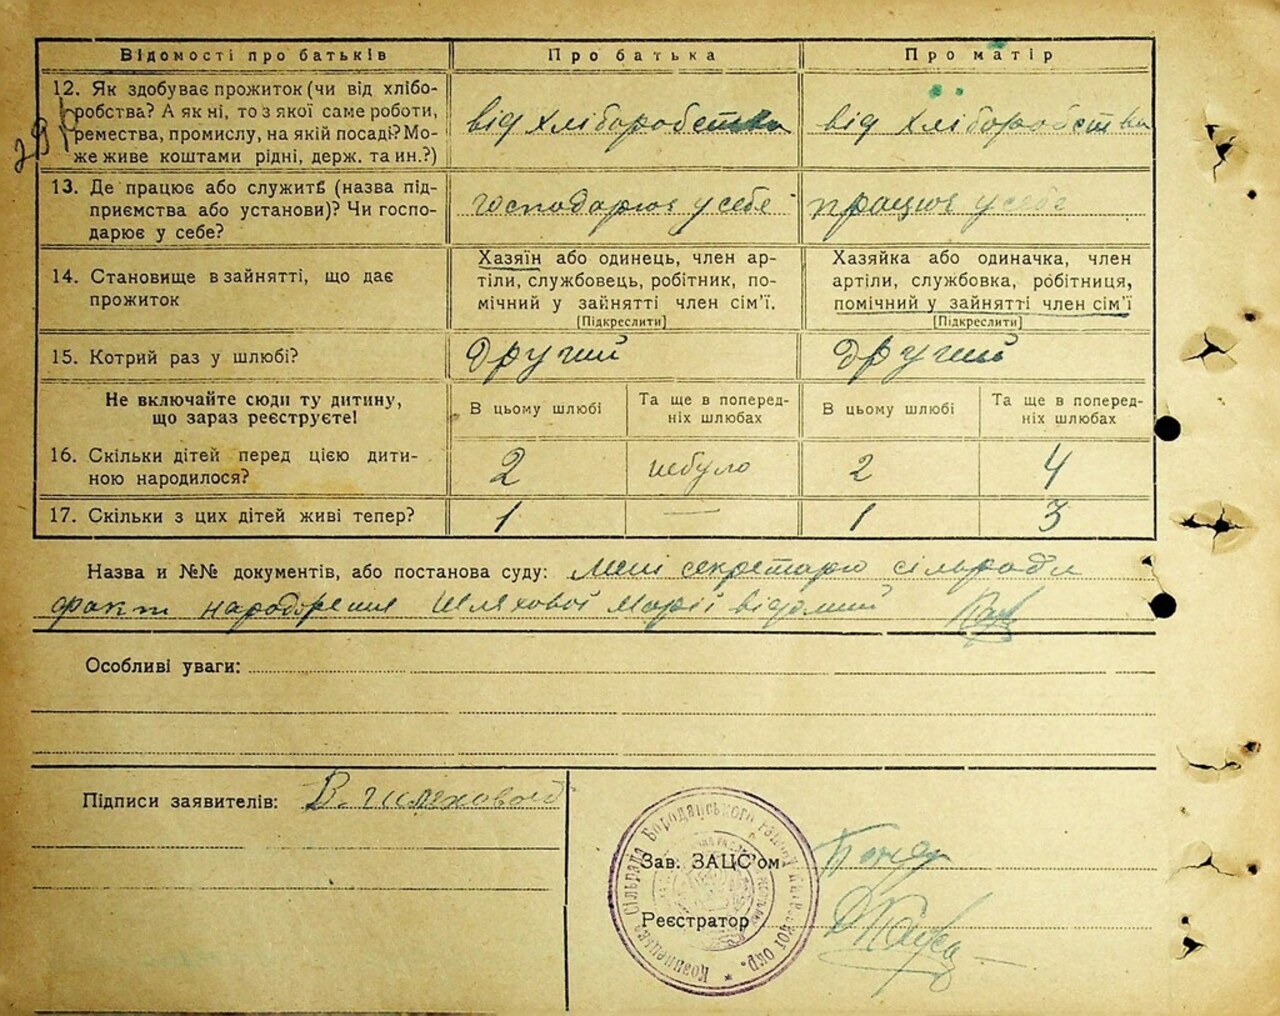 Відомості про батьків
Про батька
Про матір
12. Як здобуває прожиток (чи від хлібо-
робства? А як ні, то з якої саме роботи,
ремества, промислу, на якій посаді? Мо-
же живе коштами рідні, держ. та ин.?)
від хліборобства
від хліборобства
29
13. Де працює або служить (назва під-
приємства або установи)? Чи госпо-
дарює у себе?
господарює у себе
працює у себе
14. Становище в зайнятті, що дає
прожиток
Хазяїн або одинець, член ар-
тіли, службовець, робітник, по-
мічний у зайнятті член сім'ї.
[Підкреслити]
Хазяйка або одиначка, член
артіли, службовка, робітниця,
помічний у зайнятті член сім'ї
[Підкреслити]
15. Котрий раз у шлюбі?
другий
другий
Не включайте сюди ту дитину,
що зараз реєструєте!
В цьому шлюбі
Та ще в поперед-
ніх шлюбах
В цьому шлюбі
Та ще в поперед-
ніх шлюбах
16. Скільки дітей перед цією дити-
ною народилося?
2
небуло
2
4
17. Скільки з цих дітей живі тепер?
1
—
1
3
Назва и №№ документів, або постанова суду: мені секретарю сільради
факт народження Шляхової Марії відомий
Особливі уваги:
Підписи заявителів: В.
Зав. ЗАЦС'ом
Реєстратор
Сільрада Бородаївського району